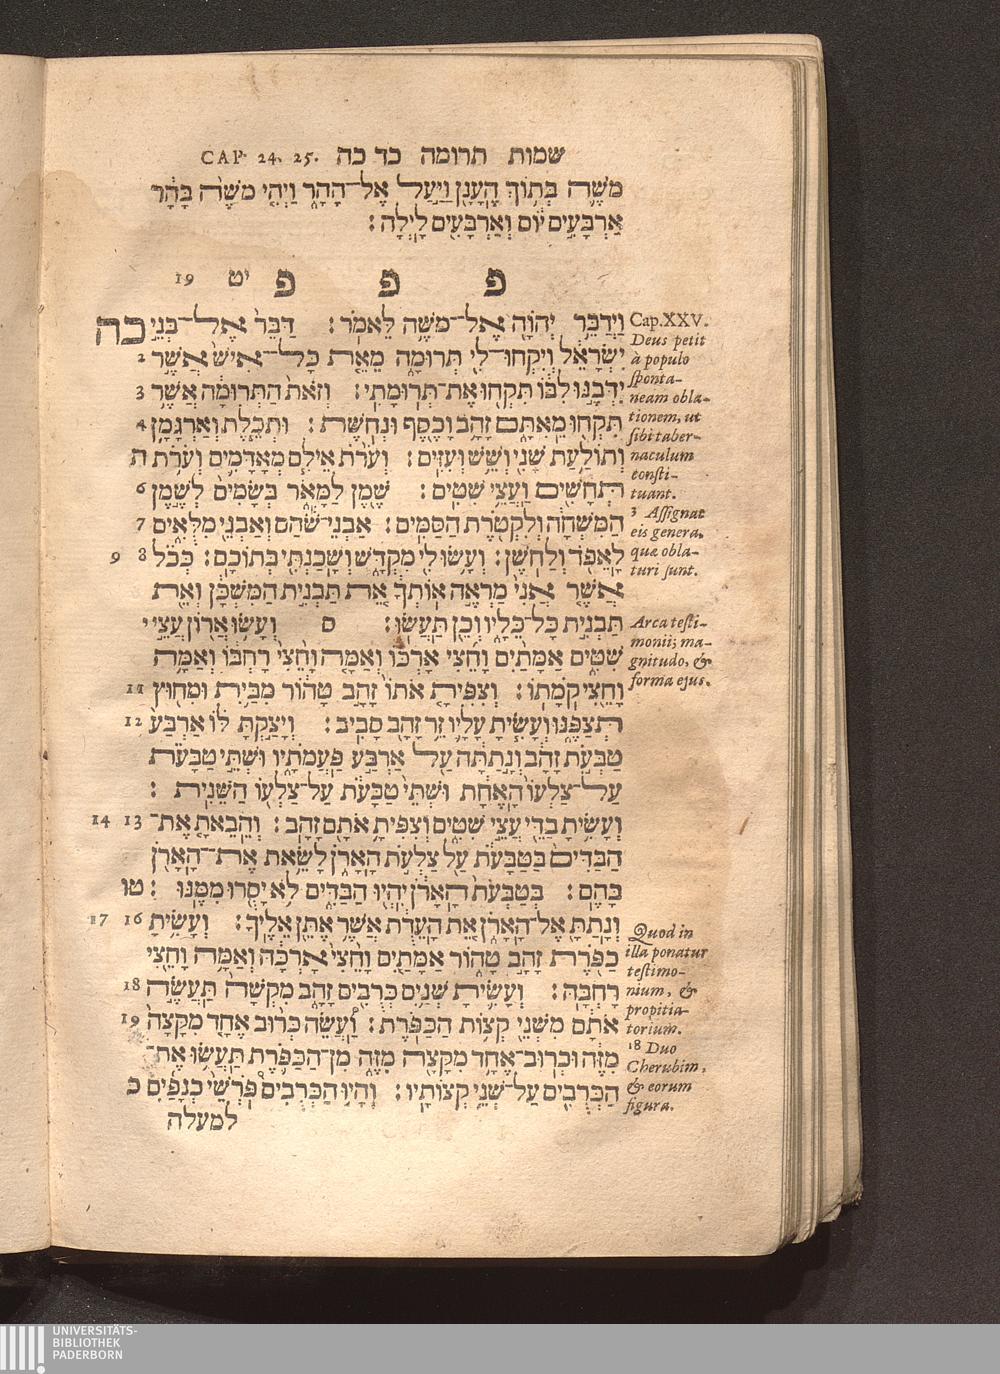 CAP. 24. 25. שמות תרומה כד כה
מֹשֶׁה בְּתוֹךְ הֶעָנָן וַיַּעַל אֶל־הָהָר וַיְהִי מֹשֶׁה בָּהָר
אַרְבָּעִים יוֹם וְאַרְבָּעִים לָיְלָה׃
פ פ פ יט 19
כה וַיְדַבֵּר יְהוָה אֶל־מֹשֶׁה לֵּאמֹר׃ דַּבֵּר אֶל־בְּנֵי
2 יִשְׂרָאֵל וְיִקְחוּ־לִי תְּרוּמָה מֵאֵת כָּל־אִישׁ אֲשֶׁר
3 יִדְּבֶנּוּ לִבּוֹ תִּקְחוּ אֶת־תְּרוּמָתִי׃ וְזֹאת הַתְּרוּמָה אֲשֶׁר
4 תִּקְחוּ מֵאִתָּם זָהָב וָכֶסֶף וּנְחֹשֶׁת׃ וּתְכֵלֶת וְאַרְגָּמָן
ה וְתוֹלַעַת שָׁנִי וְשֵׁשׁ וְעִזִּים׃ וְעֹרֹת אֵילִם מְאָדָּמִים וְעֹרֹת
6 תְּחָשִׁים וַעֲצֵי שִׁטִּים׃ שֶׁמֶן לַמָּאֹר בְּשָׂמִים לְשֶׁמֶן
7 הַמִּשְׁחָה וְלִקְטֹרֶת הַסַּמִּים׃ אַבְנֵי־שֹׁהַם וְאַבְנֵי מִלֻּאִים
9 8 לָאֵפֹד וְלַחֹשֶׁן׃ וְעָשׂוּ לִי מִקְדָּשׁ וְשָׁכַנְתִּי בְּתוֹכָם׃ כְּכֹל
אֲשֶׁר אֲנִי מַרְאֶה אוֹתְךָ אֵת תַּבְנִית הַמִּשְׁכָּן וְאֵת
תַּבְנִית כָּל־כֵּלָיו וְכֵן תַּעֲשׂוּ׃ ס וְעָשׂוּ אֲרוֹן עֲצֵי י
שִׁטִּים אַמָּתַיִם וָחֵצִי אָרְכּוֹ וְאַמָּה וָחֵצִי רָחְבּוֹ וְאַמָּה
11 וָחֵצִי קֹמָתוֹ׃ וְצִפִּיתָ אֹתוֹ זָהָב טָהוֹר מִבַּיִת וּמִחוּץ
12 תְּצַפֶּנּוּ וְעָשִׂיתָ עָלָיו זֵר זָהָב סָבִיב׃ וְיָצַקְתָּ לּוֹ אַרְבַּע
טַבְּעֹת זָהָב וְנָתַתָּה עַל אַרְבַּע פַּעֲמֹתָיו וּשְׁתֵּי טַבָּעֹת
עַל־צַלְעוֹ הָאֶחָת וּשְׁתֵּי טַבָּעֹת עַל־צַלְעוֹ הַשֵּׁנִית׃
14 13 וְעָשִׂיתָ בַדֵּי עֲצֵי שִׁטִּים וְצִפִּיתָ אֹתָם זָהָב׃ וְהֵבֵאתָ אֶת־
הַבַּדִּים בַּטַּבָּעֹת עַל צַלְעֹת הָאָרֹן לָשֵׂאת אֶת־הָאָרֹן
טו בָּהֶם׃ בְּטַבְּעֹת הָאָרֹן יִהְיוּ הַבַּדִּים לֹא יָסֻרוּ מִמֶּנּוּ׃
17 16 וְנָתַתָּ אֶל־הָאָרֹן אֵת הָעֵדֻת אֲשֶׁר אֶתֵּן אֵלֶיךָ׃ וְעָשִׂיתָ
כַפֹּרֶת זָהָב טָהוֹר אַמָּתַיִם וָחֵצִי אָרְכָּהּ וְאַמָּה וָחֵצִי
18 רָחְבָּהּ׃ וְעָשִׂיתָ שְׁנַיִם כְּרֻבִים זָהָב מִקְשָׁה תַּעֲשֶׂה
19 אֹתָם מִשְּׁנֵי קְצוֹת הַכַּפֹּרֶת׃ וַעֲשֵׂה כְּרוּב אֶחָד מִקָּצָה
מִזֶּה וּכְרוּב־אֶחָד מִקָּצָה מִזֶּה מִן־הַכַּפֹּרֶת תַּעֲשׂוּ אֶת־
כ הַכְּרֻבִים עַל־שְׁנֵי קְצוֹתָיו׃ וְהָיוּ הַכְּרֻבִים פֹּרְשֵׂי כְנָפַיִם
למעלה
Cap. XXV.
Deus petit
à populo
sponta-
neam obla-
tionem, ut
sibi taber-
naculum
consti-
tuant.
3 Assignat
eis genera,
quæ obla-
turi sunt.
Arca testi-
monii; ma-
gnitudo, &
forma ejus.
Quod in
illa ponatur
testimo-
nium, &
propitia-
torium.
18 Duo
Cherubim,
& eorum
figura.
UNIVERSITÄTS-
BIBLIOTHEK
PADERBORN